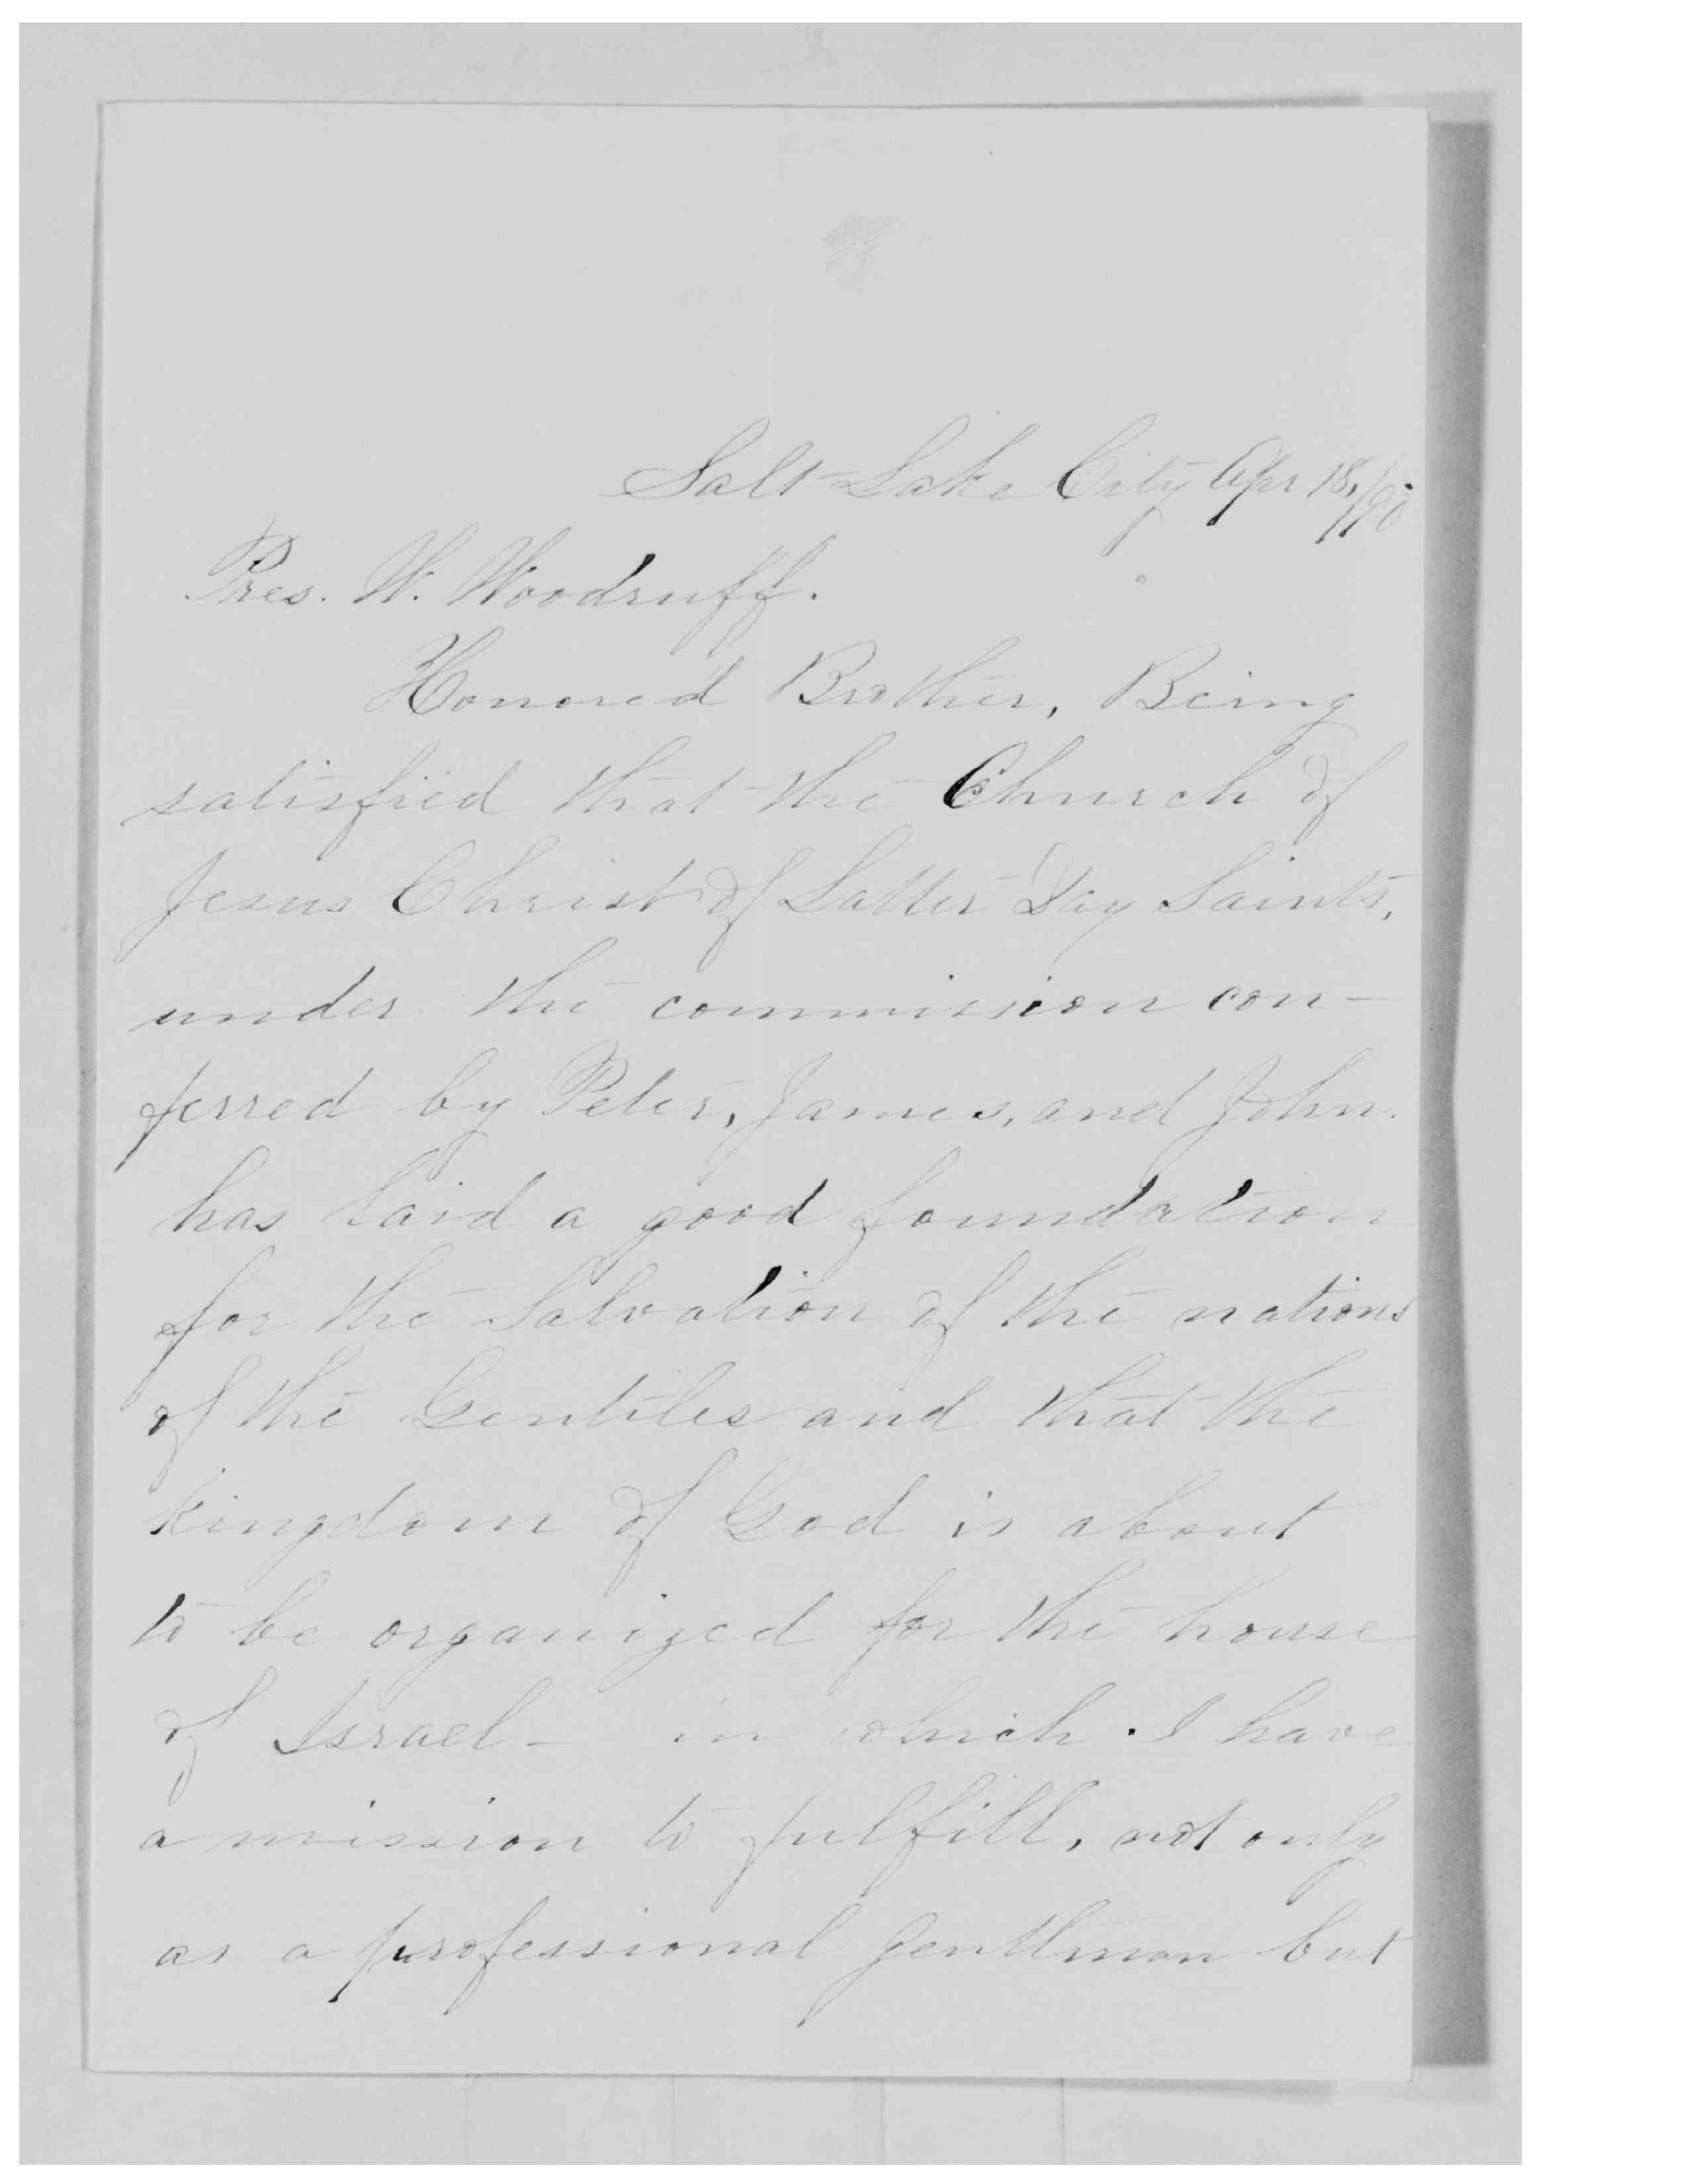 Salt Lake City Apr 18,/90
Pres. W. Woodruff.
Honored Brother, Being
satisfied that the Church of
Jesus Christ of Latter Day Saints,
under the commission con-
ferred by Peter, James, and John.
has laid a good foundation
for the Salvation of the nations
of the Gentiles and that the
kingdom of God is about
to be organized for the house
of Israel - in which I have
a mission to fulfill, not only
as a professional gentlman but